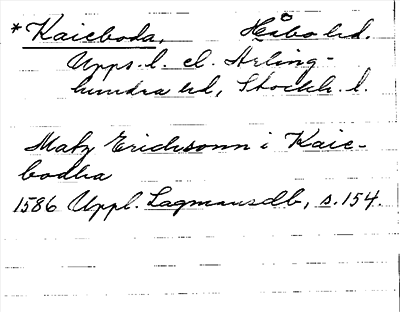 *Kaieboda. Håbo hd.
Upps. l. el. Ärling-
hundra hd, Stockh. l.
Matz Erichsonn i Kaie-
bodha
1586 Uppl. Lagmansdb, s. 154.